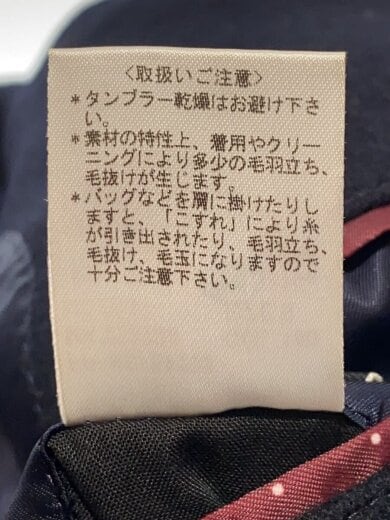 〈取扱いご注意〉
*タンブラー乾燥はお避け下さ
い。
*素材の特性上、着用やクリー
ニングにより多少の毛羽立ち、
毛抜けが生じます。
*バッグなどを肩に掛けたりし
ますと、「こすれ」により糸
が引き出されたり、毛羽立ち、
毛抜け、毛玉になりますので
十分ご注意下さい。